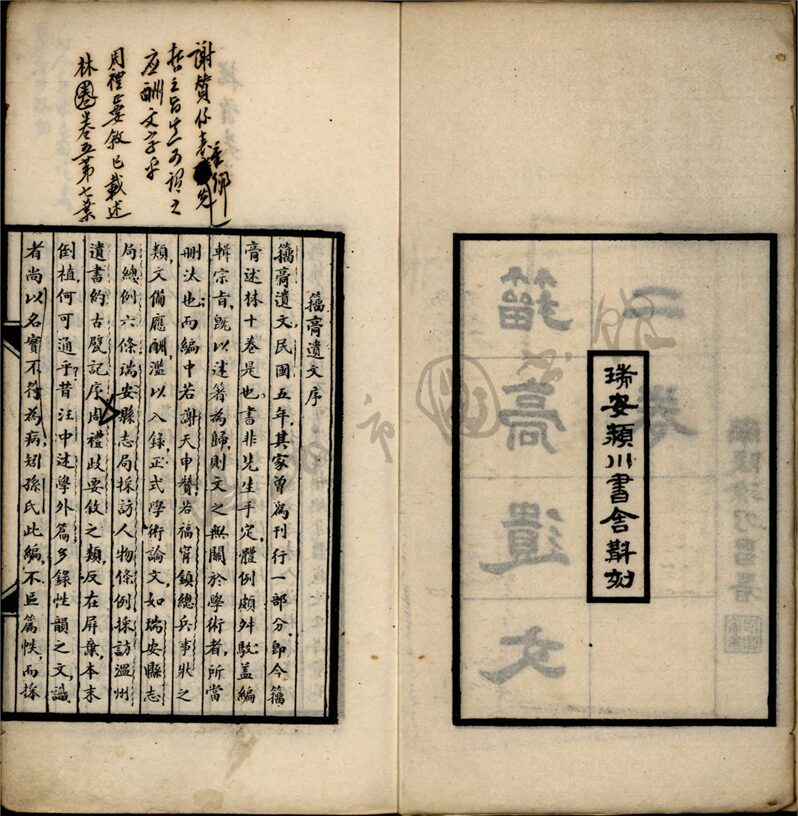 瑞安潁川書舍斠刻
謝贊係壽
應酬文字乎
周禮政要敘已載述
林卷五第七葉
籀廎遺文序
籀廎遺文民國五年其家曾為刊行一部分即今籀
廎述林十卷是也書非先生手定體例頗舛駮蓋編
輯宗旨既以述箸為歸則文之無關於學術者所當
刪汰也而編中若謝天申贊若福甯鎮總兵事狀之
類文備應酬濫以入錄正式學術論文如瑞安縣志
局總例六條瑞安縣志局採訪人物條例採訪溫州
遺書約古甓記序周禮政要敘之類反在屏棄本末
倒植何可通乎昔汪中述學外篇多錄性韻之文識
者尚以名實不符為病矧孫氏此編不巨篇帙而採
三卷
籀廎遺文